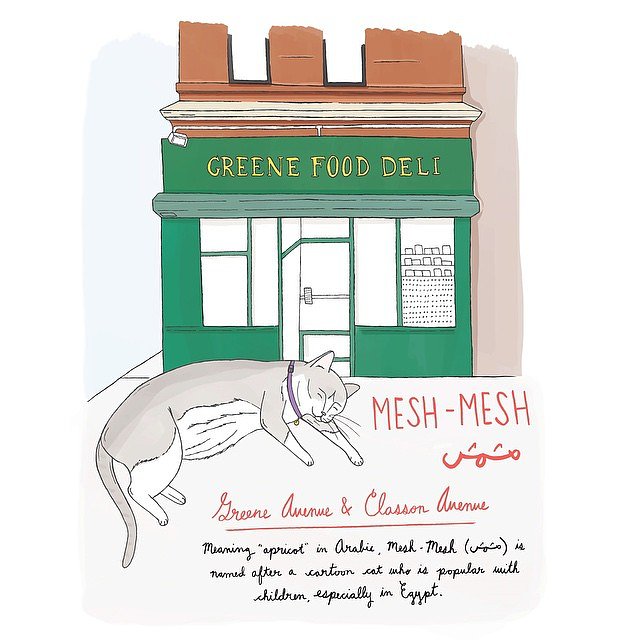 GREENE FOOD DELI
MESH-MESH
مشمش
Greene Avenue & Classon Avenue
Meaning "apricot" in Arabic, Mesh-Mesh (مشمش) is
named after a cartoon cat who is popular with
children, especially in Egypt.